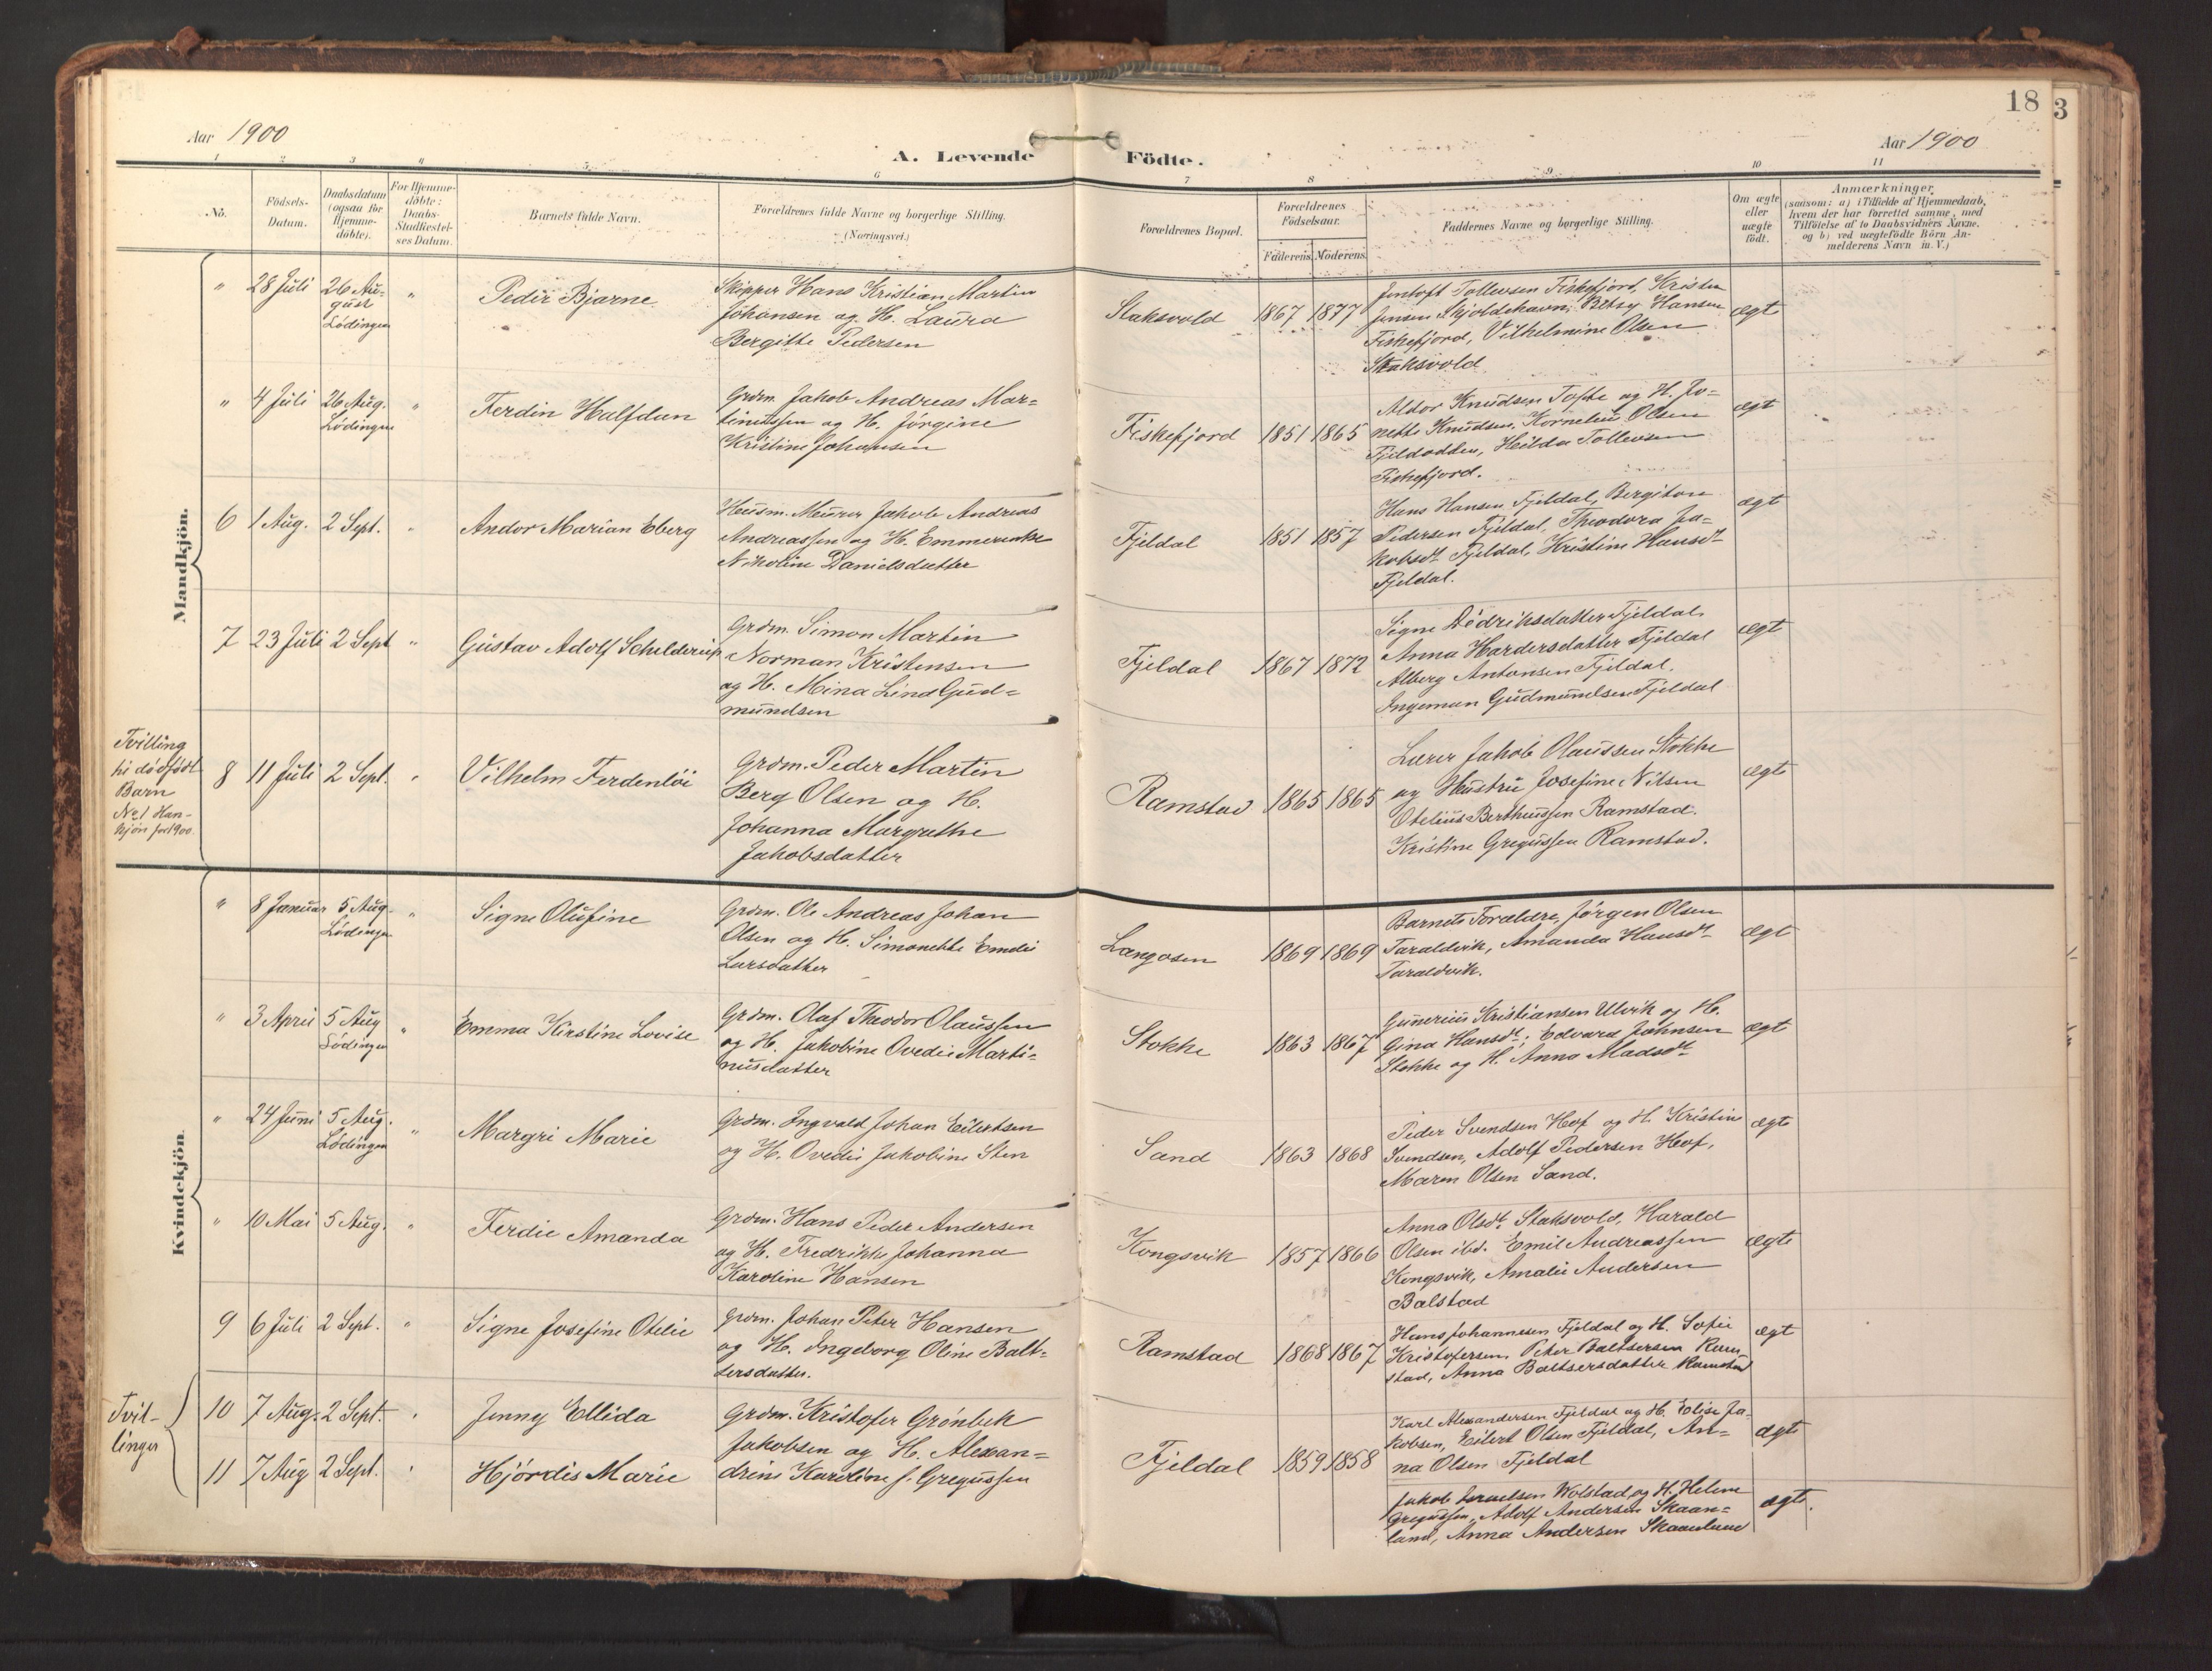 18
3
Aar 1900
A. Levende Födte.
Aar 1900
1 2 3 4 5 6 7 8 9 10 11
No.
Födsels-
Datum.
Daabsdatum
(ogsaa for
Hjemme-
döbte).
For Hjemme-
döbte:
Daabs-
Stadfæstel-
ses Datum.
Barnets fulde Navn.
Forældrenes fulde Navne og borgerlige Stilling.
(Næringsvei.)
Forældrenes Bopæl.
Forældrenes
Födselsaar.
Faderens. Moderens.
Faddernes Navne og borgerlige Stilling.
Om ægte
eller
uægte
födt.
Anmærkninger
(saasom: a) i Tilfælde af Hjemmedaab,
hvem der har forrettet samme, med
Tilföielse af to Daabsvidners Navne,
og b) ved uægtefödte Börn An-
melderens Navn m. V.)
Mandkjön.
" 28 Juli 26 Au-
gust
Lödingen
"
Peder Bjarne
Skipper Hans Kristian Martin
Johansen og H. Laura
Bergitte Pedersen
Staksvold 1867 1877
Jentoft Tollevsen Fiskefjord, Kristen
Jensen Skjoldehavn, Betsy Hansen
Fiskefjord, Vilhelmine Olsen
Staksvold
ægt
" 4 Juli 26 Aug.
Lödingen
"
Ferdin Halfdan
Grdm. Jakob Andreas Mar-
tinussen og H. Jörgine
Kristine Johansen
Fiskefjord 1851 1865
Aldor Knudsen Tofte og H. Jo-
nette Knudsen, Kornelius Olsen
Fjeldodden, Hilda Tollevsen
Fiskefjord.
ægt
6 1 Aug. 2 Sept. "
Andor Marian Eberg
Husm. Murer Jakob Andreas
Andreassen og H. Emmerenke
Nikoline Danielsdatter
Fjeldal 1851 1857
Hans Hansen Fjeldal, Bergiton
Pedersen Fjeldal, Theodora Ja-
kobsdt Fjeldal, Kristine Hansdt
Fjeldal.
ægt
7 23 Juli 2 Sept "
Gustav Adolf Schelderup
Grdm. Simon Martin
Norman Kristensen
og H. Mina Lind Gud-
mundsen
Fjeldal 1867 1872
Signe Didriksdatter Fjeldal
Anna Hardersdatter Fjeldal
Alberg Antonsen Fjeldal.
Ingeman Gudmundsen Fjeldal
ægt
Tvilling
til dødfødt
Barn
No 1 Han-
kjön for 1900.
8 11 Juli 2 Sept. "
Vilhelm Ferdenlöi
Grdm. Peder Martin
Berg Olsen og H.
Johanna Margrethe
Jakobsdatter
Ramstad 1865 1865
Lærer Jakob Olaussen Stokke
og Hustru Josefine Nilsen
Otelius Bertheussen Ramstad.
Kristine Gregussen Ramstad.
ægte
Kvindekjön.
" 8 Januar 5 Aug.
Lödingen
"
Signe Olufine
Grdm. Ole Andreas Johan
Olsen og H. Simonette Emelie
Larsdatter
Langosen 1869 1869
Barnets Forældre, Jörgen Olsen
Taraldvik, Amanda Hansdt
Taraldvik.
ægt
" 3 April 5 Aug
Lödingen
"
Emma Kirstine Lovise
Grdm. Olaf Theodor Olaussen
og H. Jakobine Ovedie Marti-
nusdatter
Stokke 1863 1867
Gunerius Kristiansen Ulvik og H.
Gina Hansdt; Edvard Johnsen
Stokke og H. Anna Madsdt
ægt
" 24 Juni 5 Aug.
Lödingen
"
Margri Marie
Grdm. Ingvald Johan Eilertsen
og H. Ovedie Jakobine Sten
Sand 1863 1868
Peder Svendsen Hof og H. Kristine
Svendsen, Adolf Pedersen Hof,
Maren Olsen Sand.
ægte
" 10 Mai 5 Aug. "
Ferdie Amanda
Grdm. Hans Peder Andersen
og H. Fredrikke Johanna
Karoline Hansen
Kongsvik 1857 1866
Anna Olsdt Staksvold, Harald
Olsen ibd. Emil Andreassen
Kongsvik, Amalie Andersen
Balstad
ægte
9 6 Juli 2 Sept. "
Signe Josefine Otelie
Grdm. Johan Peter Hansen
og H. Ingeborg Oline Balt-
sersdatter.
Ramstad 1868 1867
Hans Johannesen Fjeldal og H. Sofie
Kristofersen, Peter Baltsersen Ram-
stad, Anna Baltsersdatter Ramstad
ægt
Tvil-
linger
10 7 Aug. 2 Sept. "
Jenny Ellida
11 7 Aug 2 Sept. "
Hjördis Marie
Grdm. Kristofer Grönbek
Jakobsen og H. Alexan-
drine Karoline f. Gregussen
Fjeldal 1859 1858
Karl Alexandersen Fjeldal og H. Elise Ja-
kobsen, Eilert Olsen Fjeldal, An-
na Olsen Fjeldal
ægte
Jakob Israelsen Wolstad og H. Helene
Gregussen, Adolf Andersen Skaan-
land, Anna Andersen Skaanland
ægte.